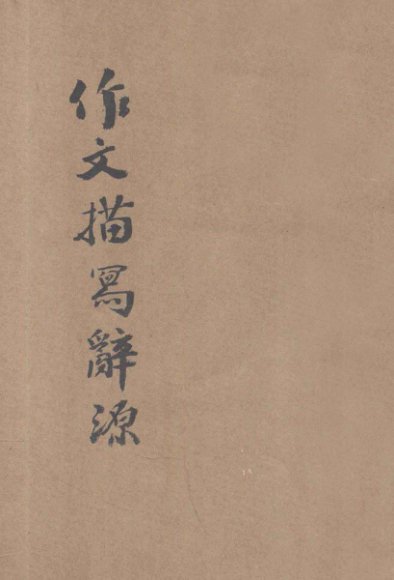 作文描寫辭源